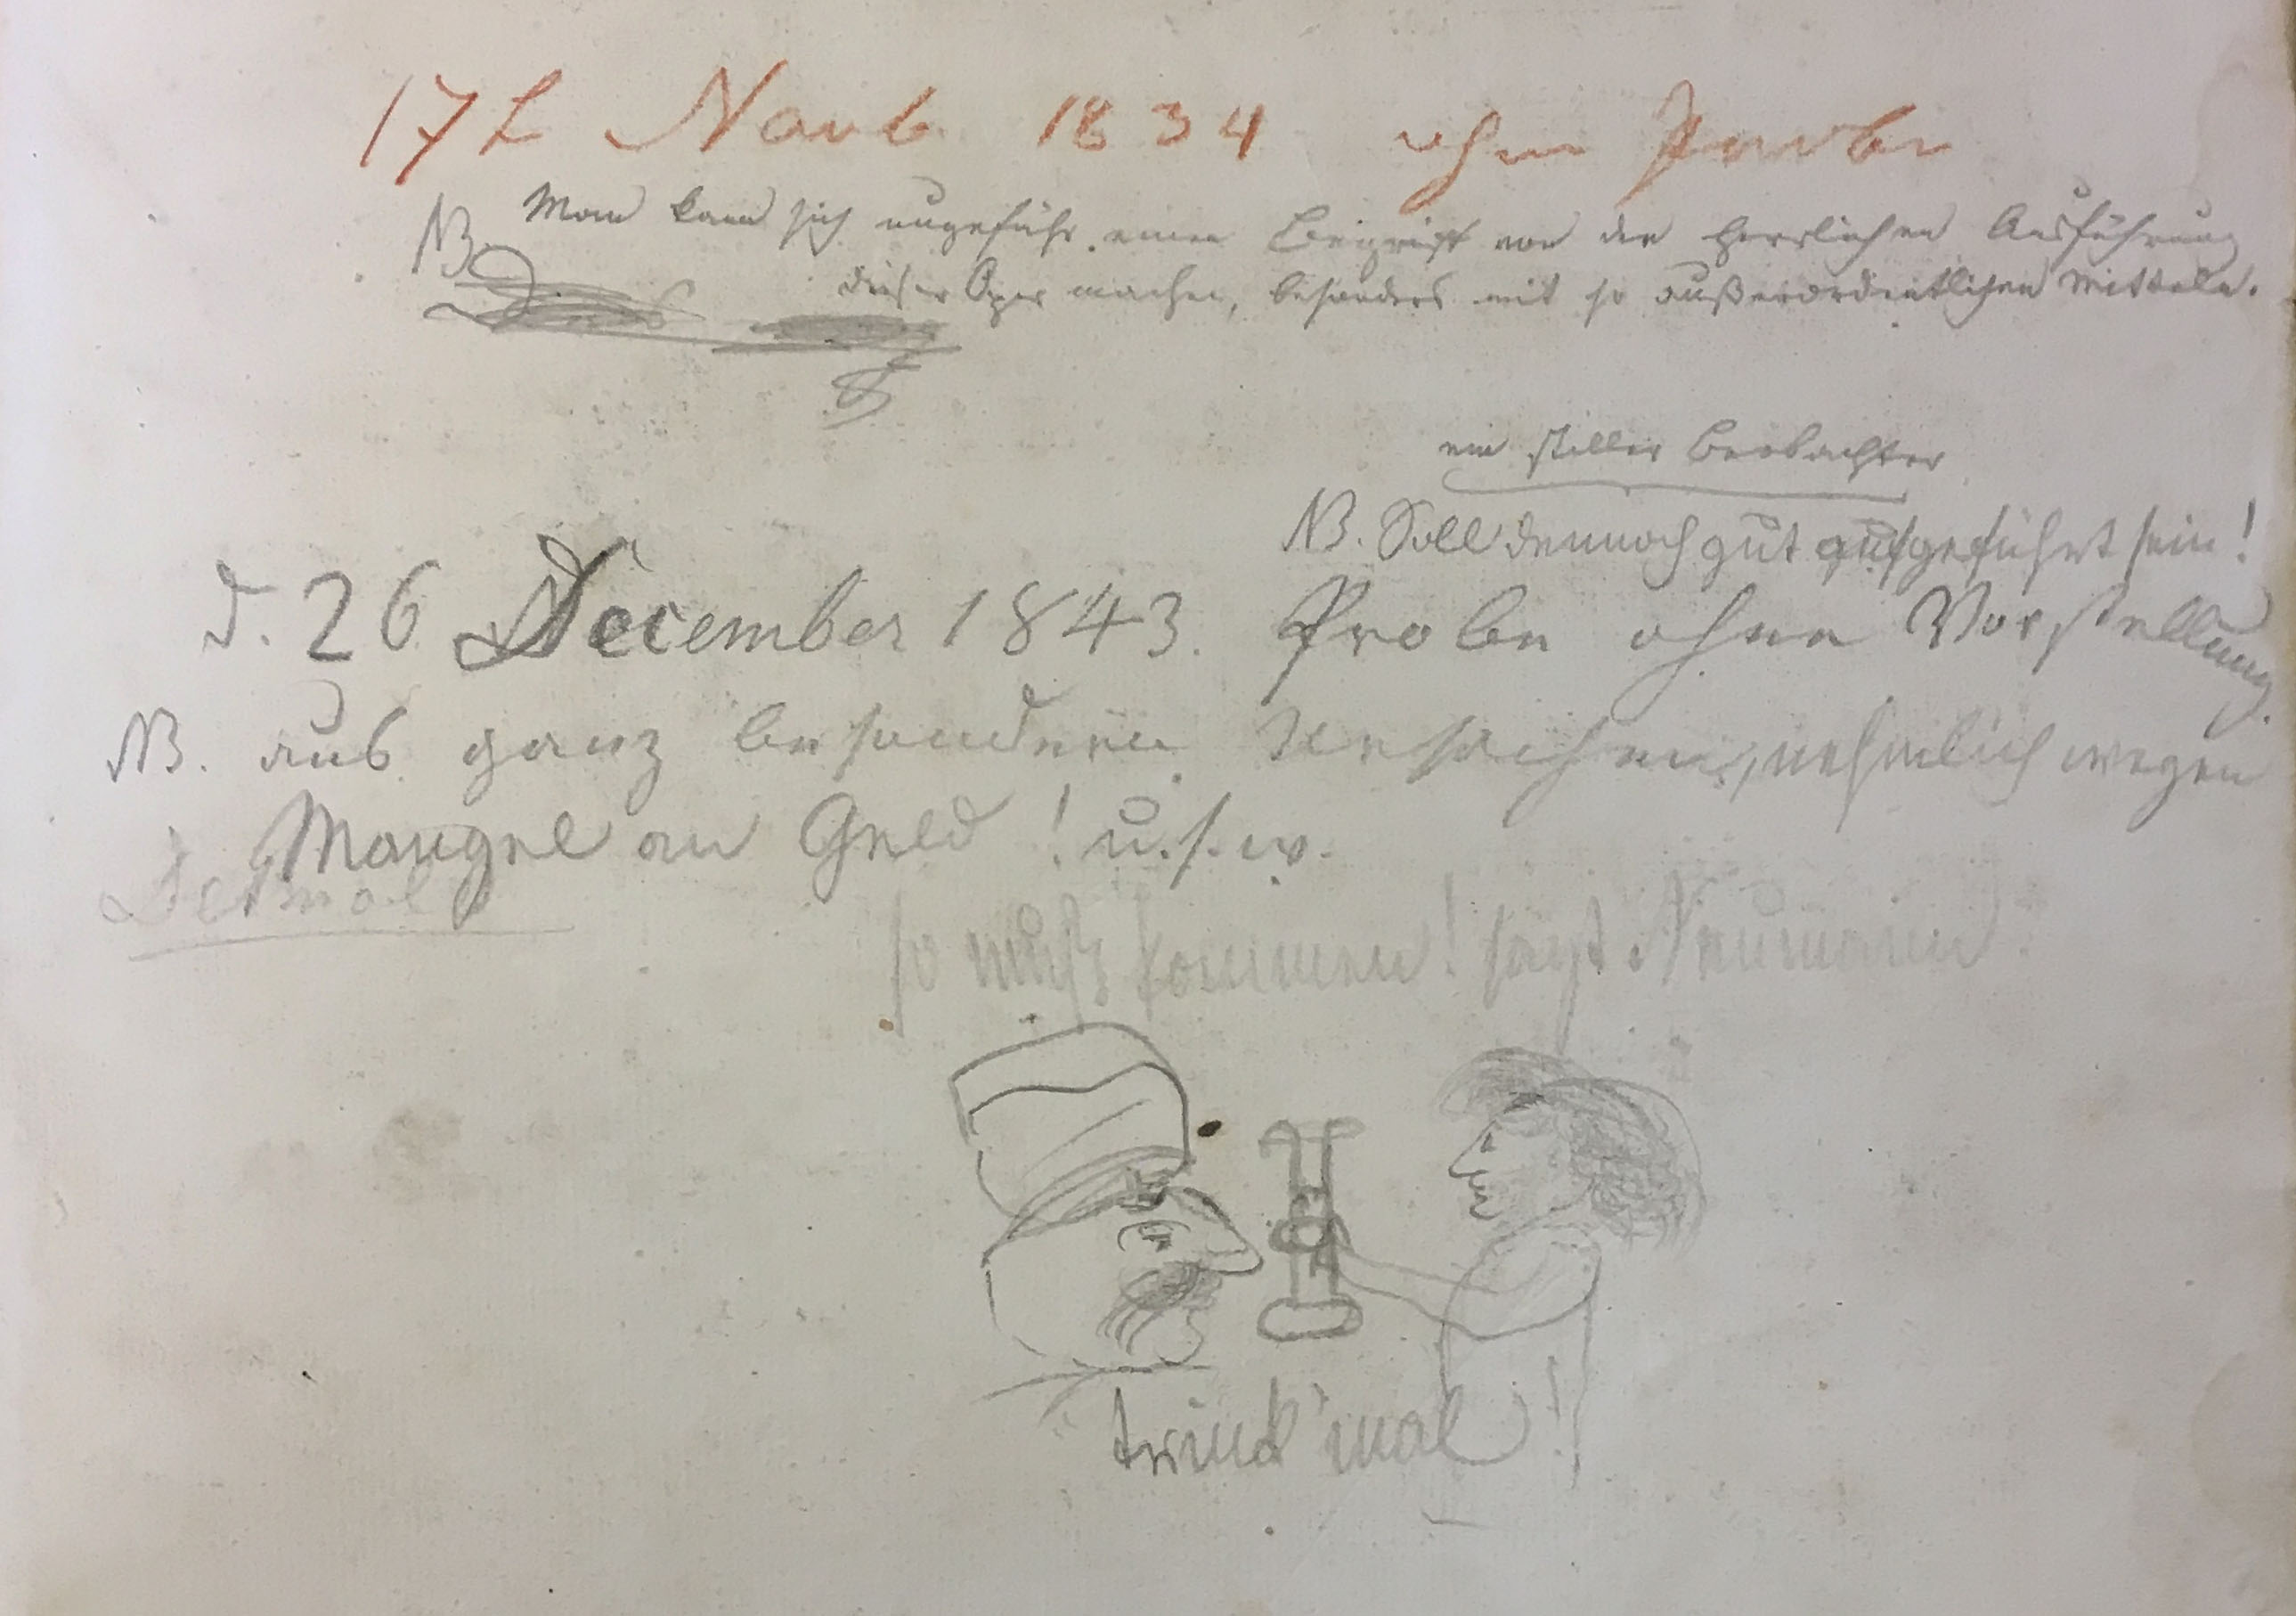 17t Novb. 1834 ohne Probe
NB. Man kann sich ungefähr einen Begriff von der herrlichen Ausführung
dieser Oper machen, besonders mit so außerordentlichen Mitteln.
ein stiller Beobachter
NB. Soll dennoch gut ausgeführt sein!
d. 26 December 1843. Probe ohne Vorstellung
NB. aus ganz besonderen Ursachen, nehmlich wegen
Mangel an Geld! u.s.w.
Detmold
so muß kommen! sagt Neumann.
trink' mal!